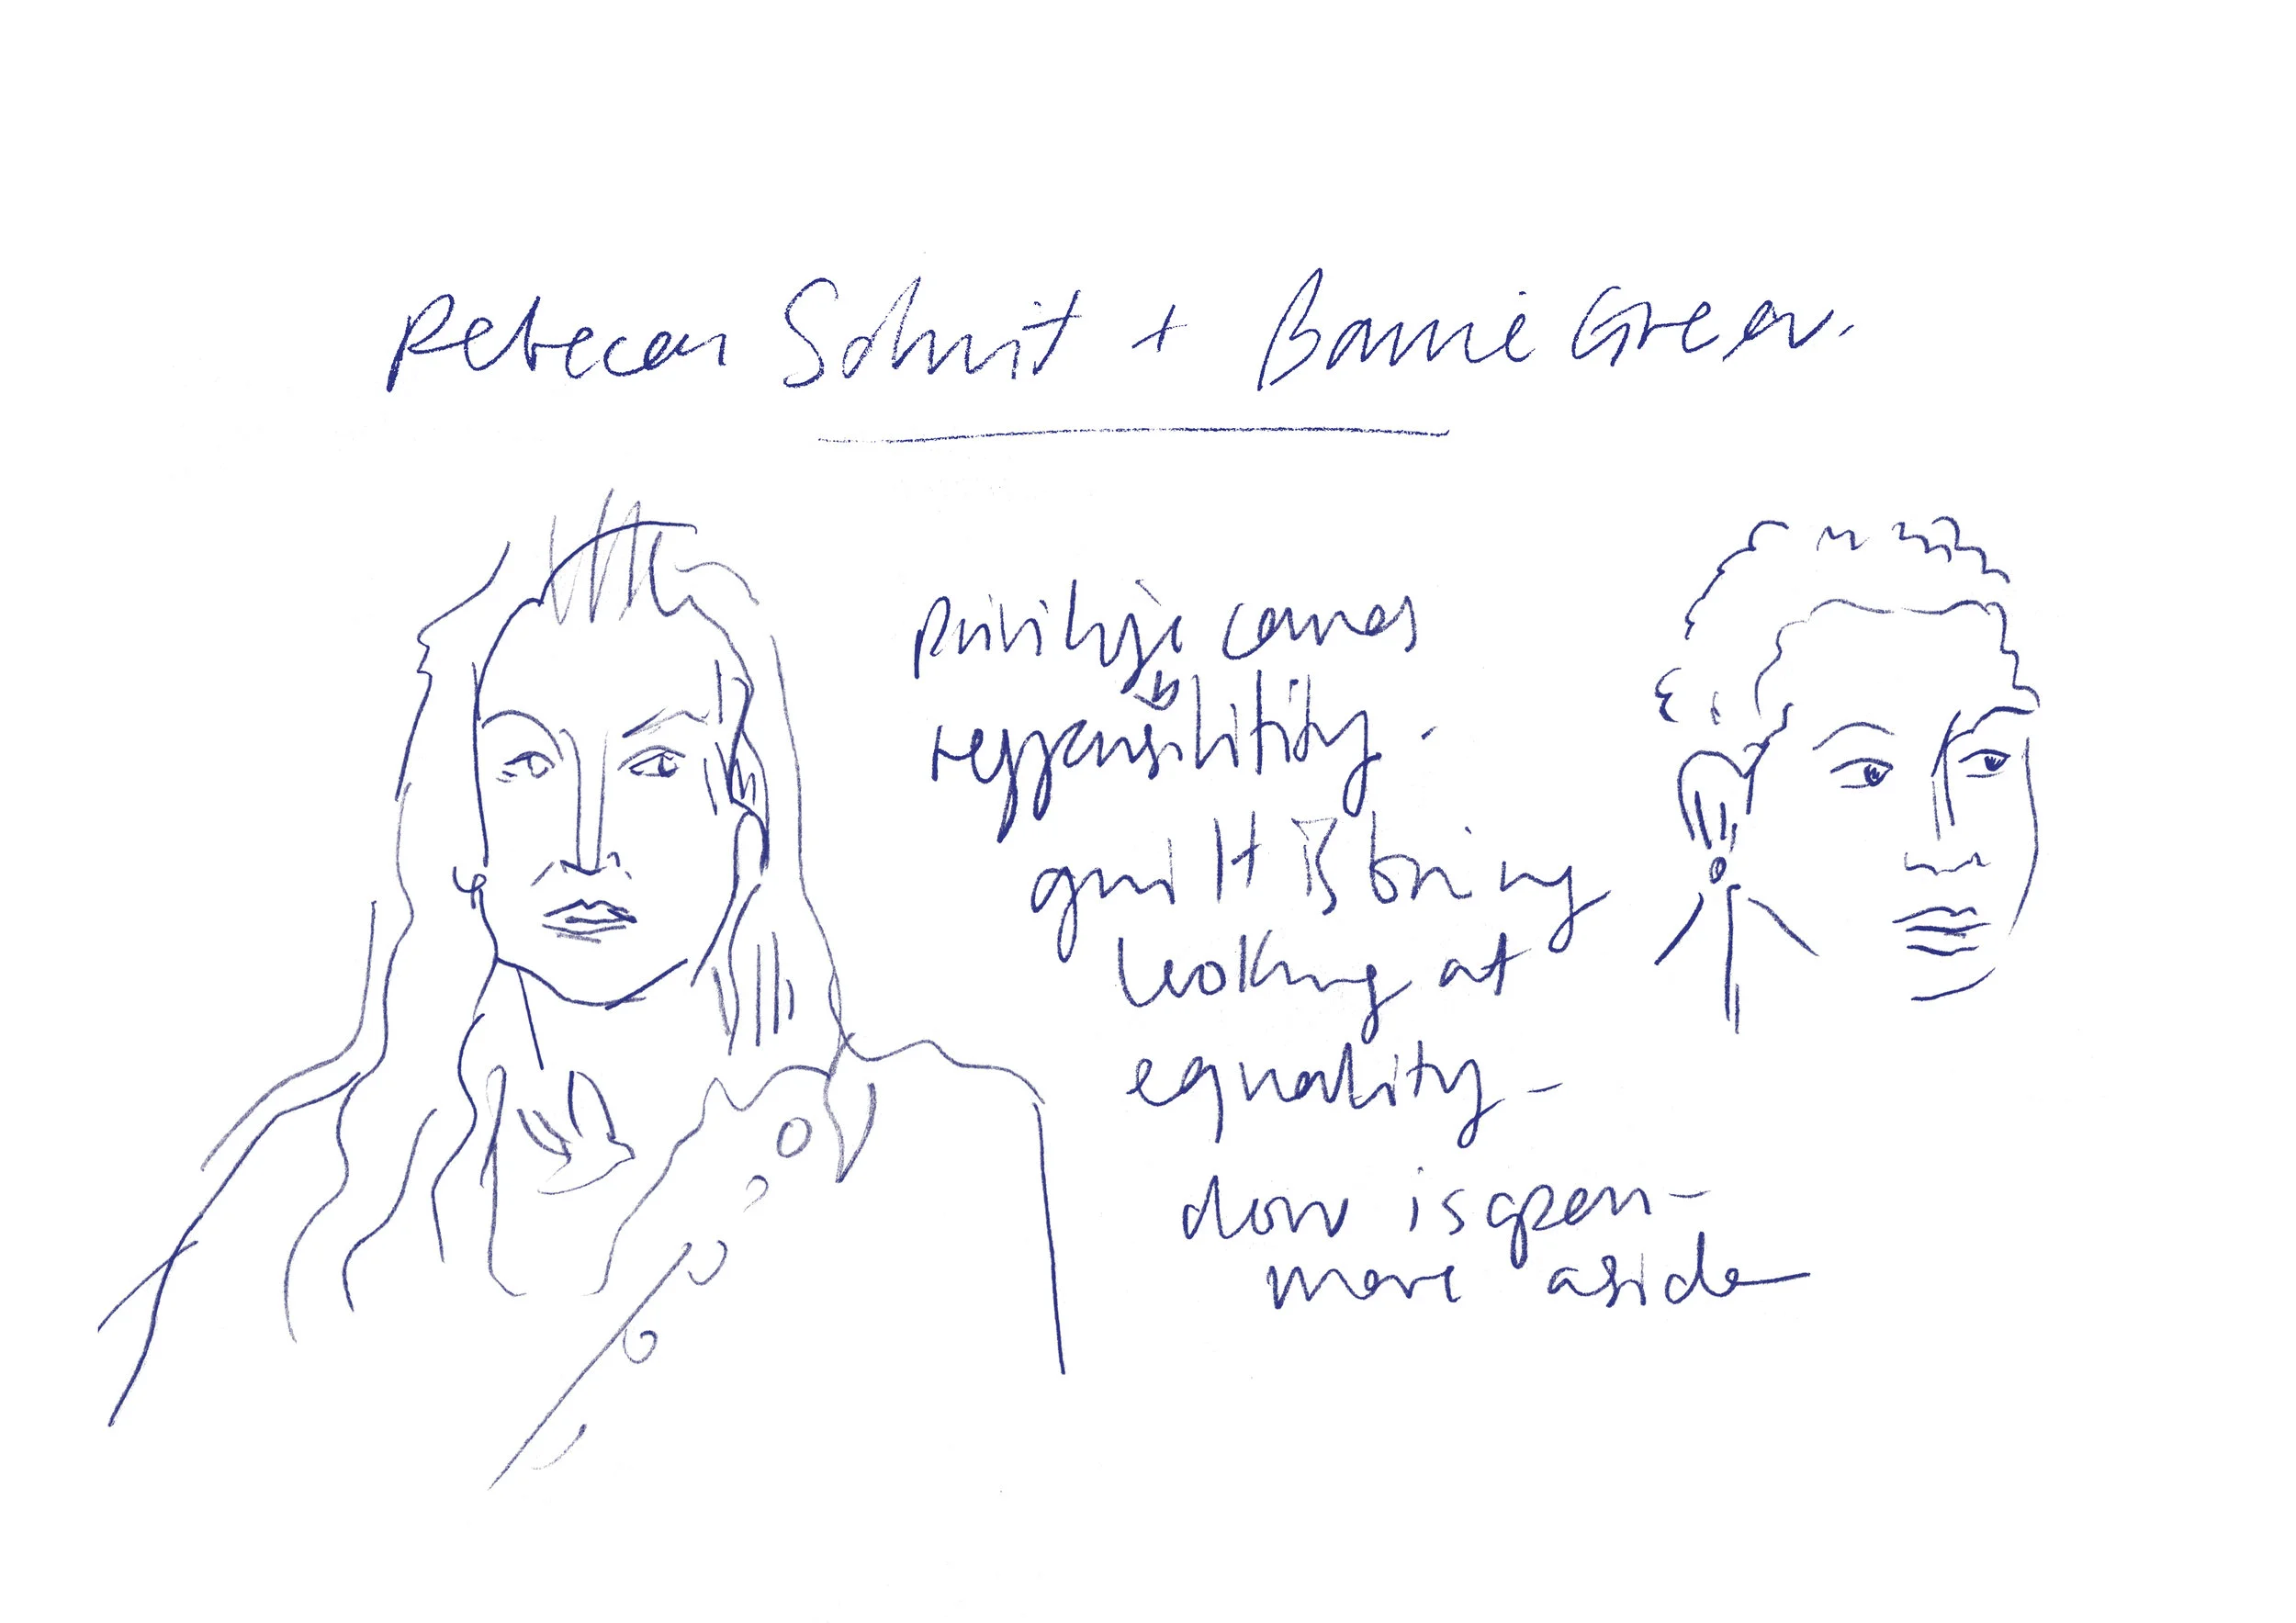 Rebecca Solnit + Bonnie Greer.
privilege comes
w
responsibility.
guilt is boring
looking at
equality -
door is open -
move aside